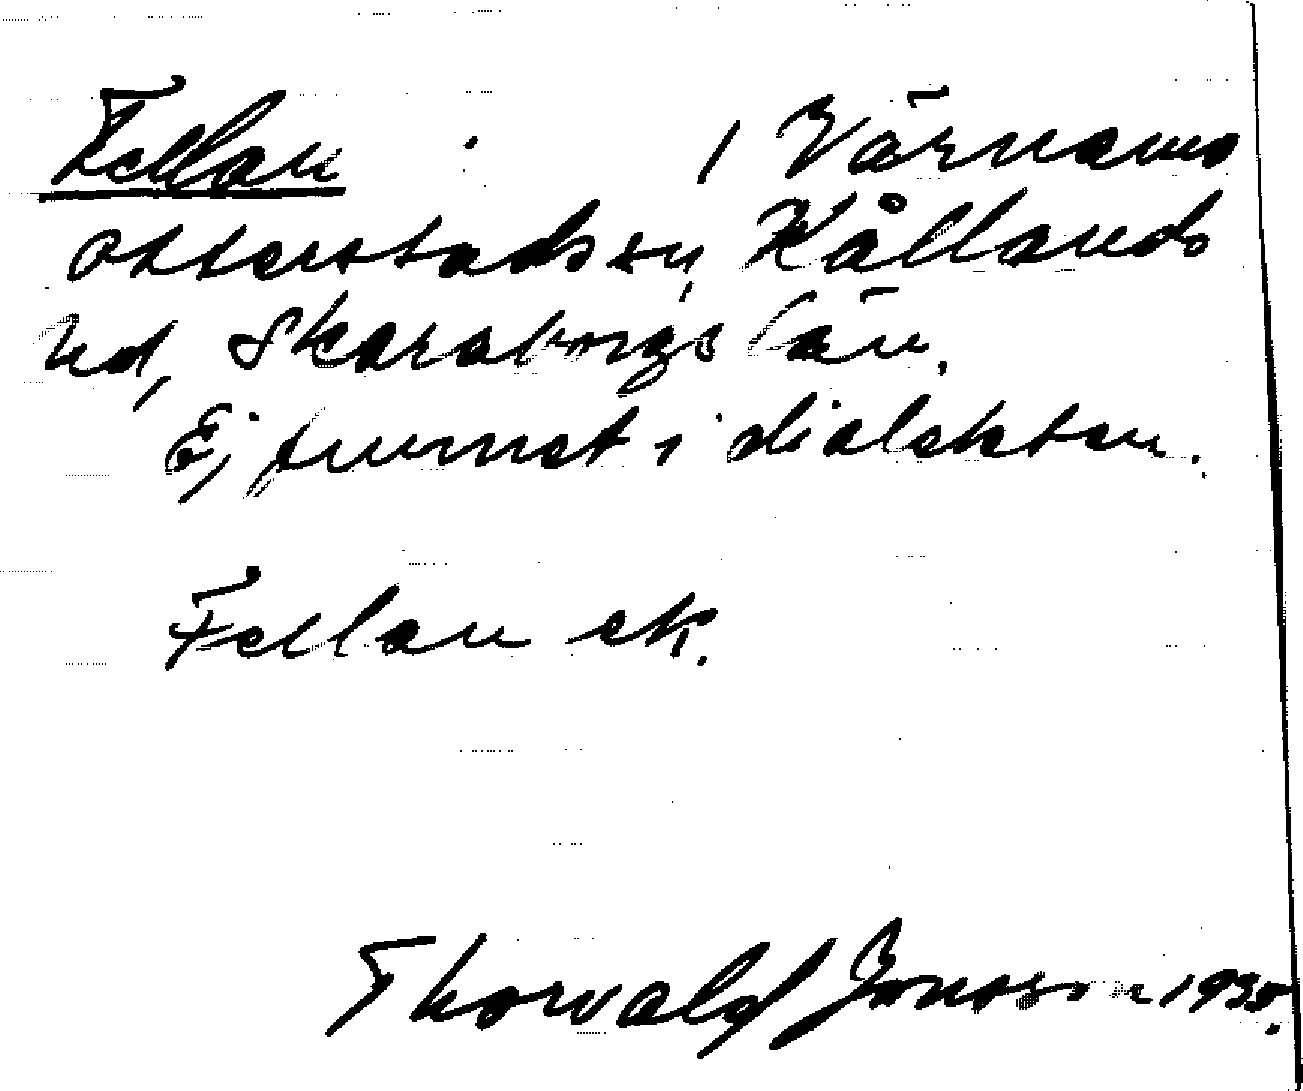 Fellan : 1 Värnamo
Otterstads sn, Kållands
hd, Skaraborgs län.
Ej funnet i dialekten.
Fellan ek.
Thorvald Jonsson 1930.